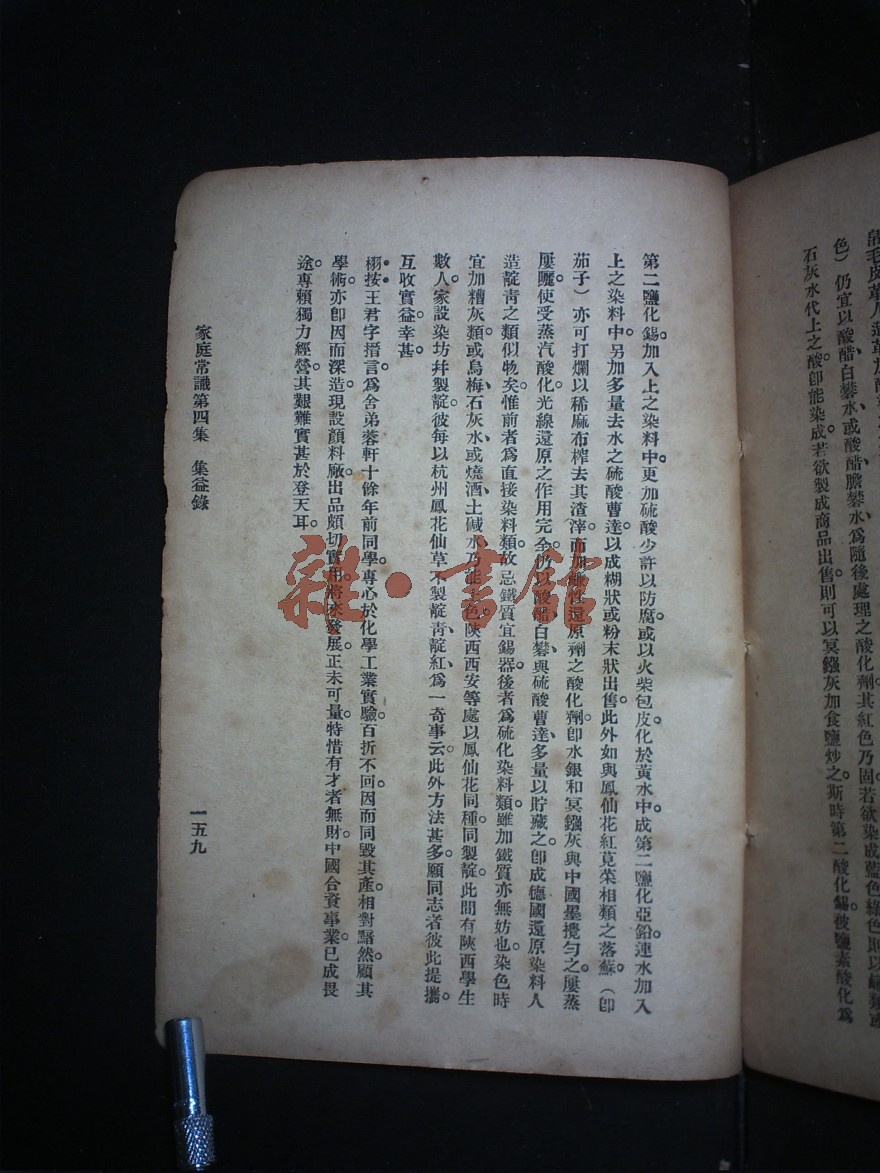 色）仍宜以酸醋白礬水、或酸醋膽礬水、爲隨後處理之酸化劑。其紅色乃固。若欲染成藍色綠色。則以
石灰水代上之酸。卽能染成。若欲製成商品出售。則可以冥鏹灰加食鹽炒之。斯時第二酸化錫。被鹽素酸化爲
第二鹽化錫。加入上之染料中。更加硫酸少許以防腐。或以火柴包皮化於黃水中。成第二鹽化亞鉛。連水加入
上之染料中。另加多量去水之硫酸曹達。以成糊狀或粉末狀出售。此外如與鳳仙花紅莧菜相類之落蘇（卽
茄子）亦可打爛。以稀麻布榨去其渣滓。而加還原劑之酸化劑。卽水銀和冥鏹灰與中國墨攪勻之。屢蒸
屢曬。使受蒸汽酸化光線還原之作用完全。仍以酸醋白礬、與硫酸曹達多量以貯藏之。卽成德國還原染料人
造靛靑之類似物矣。惟前者爲直接染料類。故忌鐵質宜錫器。後者爲硫化染料類。雖加鐵質亦無妨也。染色時
宜加糟灰類、或烏梅、石灰水、或燒酒、土碱水、乃能上色。陝西西安等處以鳳仙花同種同製靛。此間有陝西學生
數人家設染坊幷製靛。彼每以杭州鳳花仙草不製靛靑、靛紅、爲一奇事云。此外方法甚多。願同志者彼此提攜。
互收實益。幸甚。
栩按王君字搢言。爲舍弟蓉軒十餘年前同學。專心於化學工業實驗。百折不回。因而同毀其產。相對黯然。顧其
學術亦卽因而深造。現設顏料廠。出品頗切實用。將來發展。正未可量。特惜有才者無財。中國合資事業。已成畏
途。專賴獨力經營。其艱難實甚於登天耳。
家庭常識第四集　集益錄
一五九
雜・書館